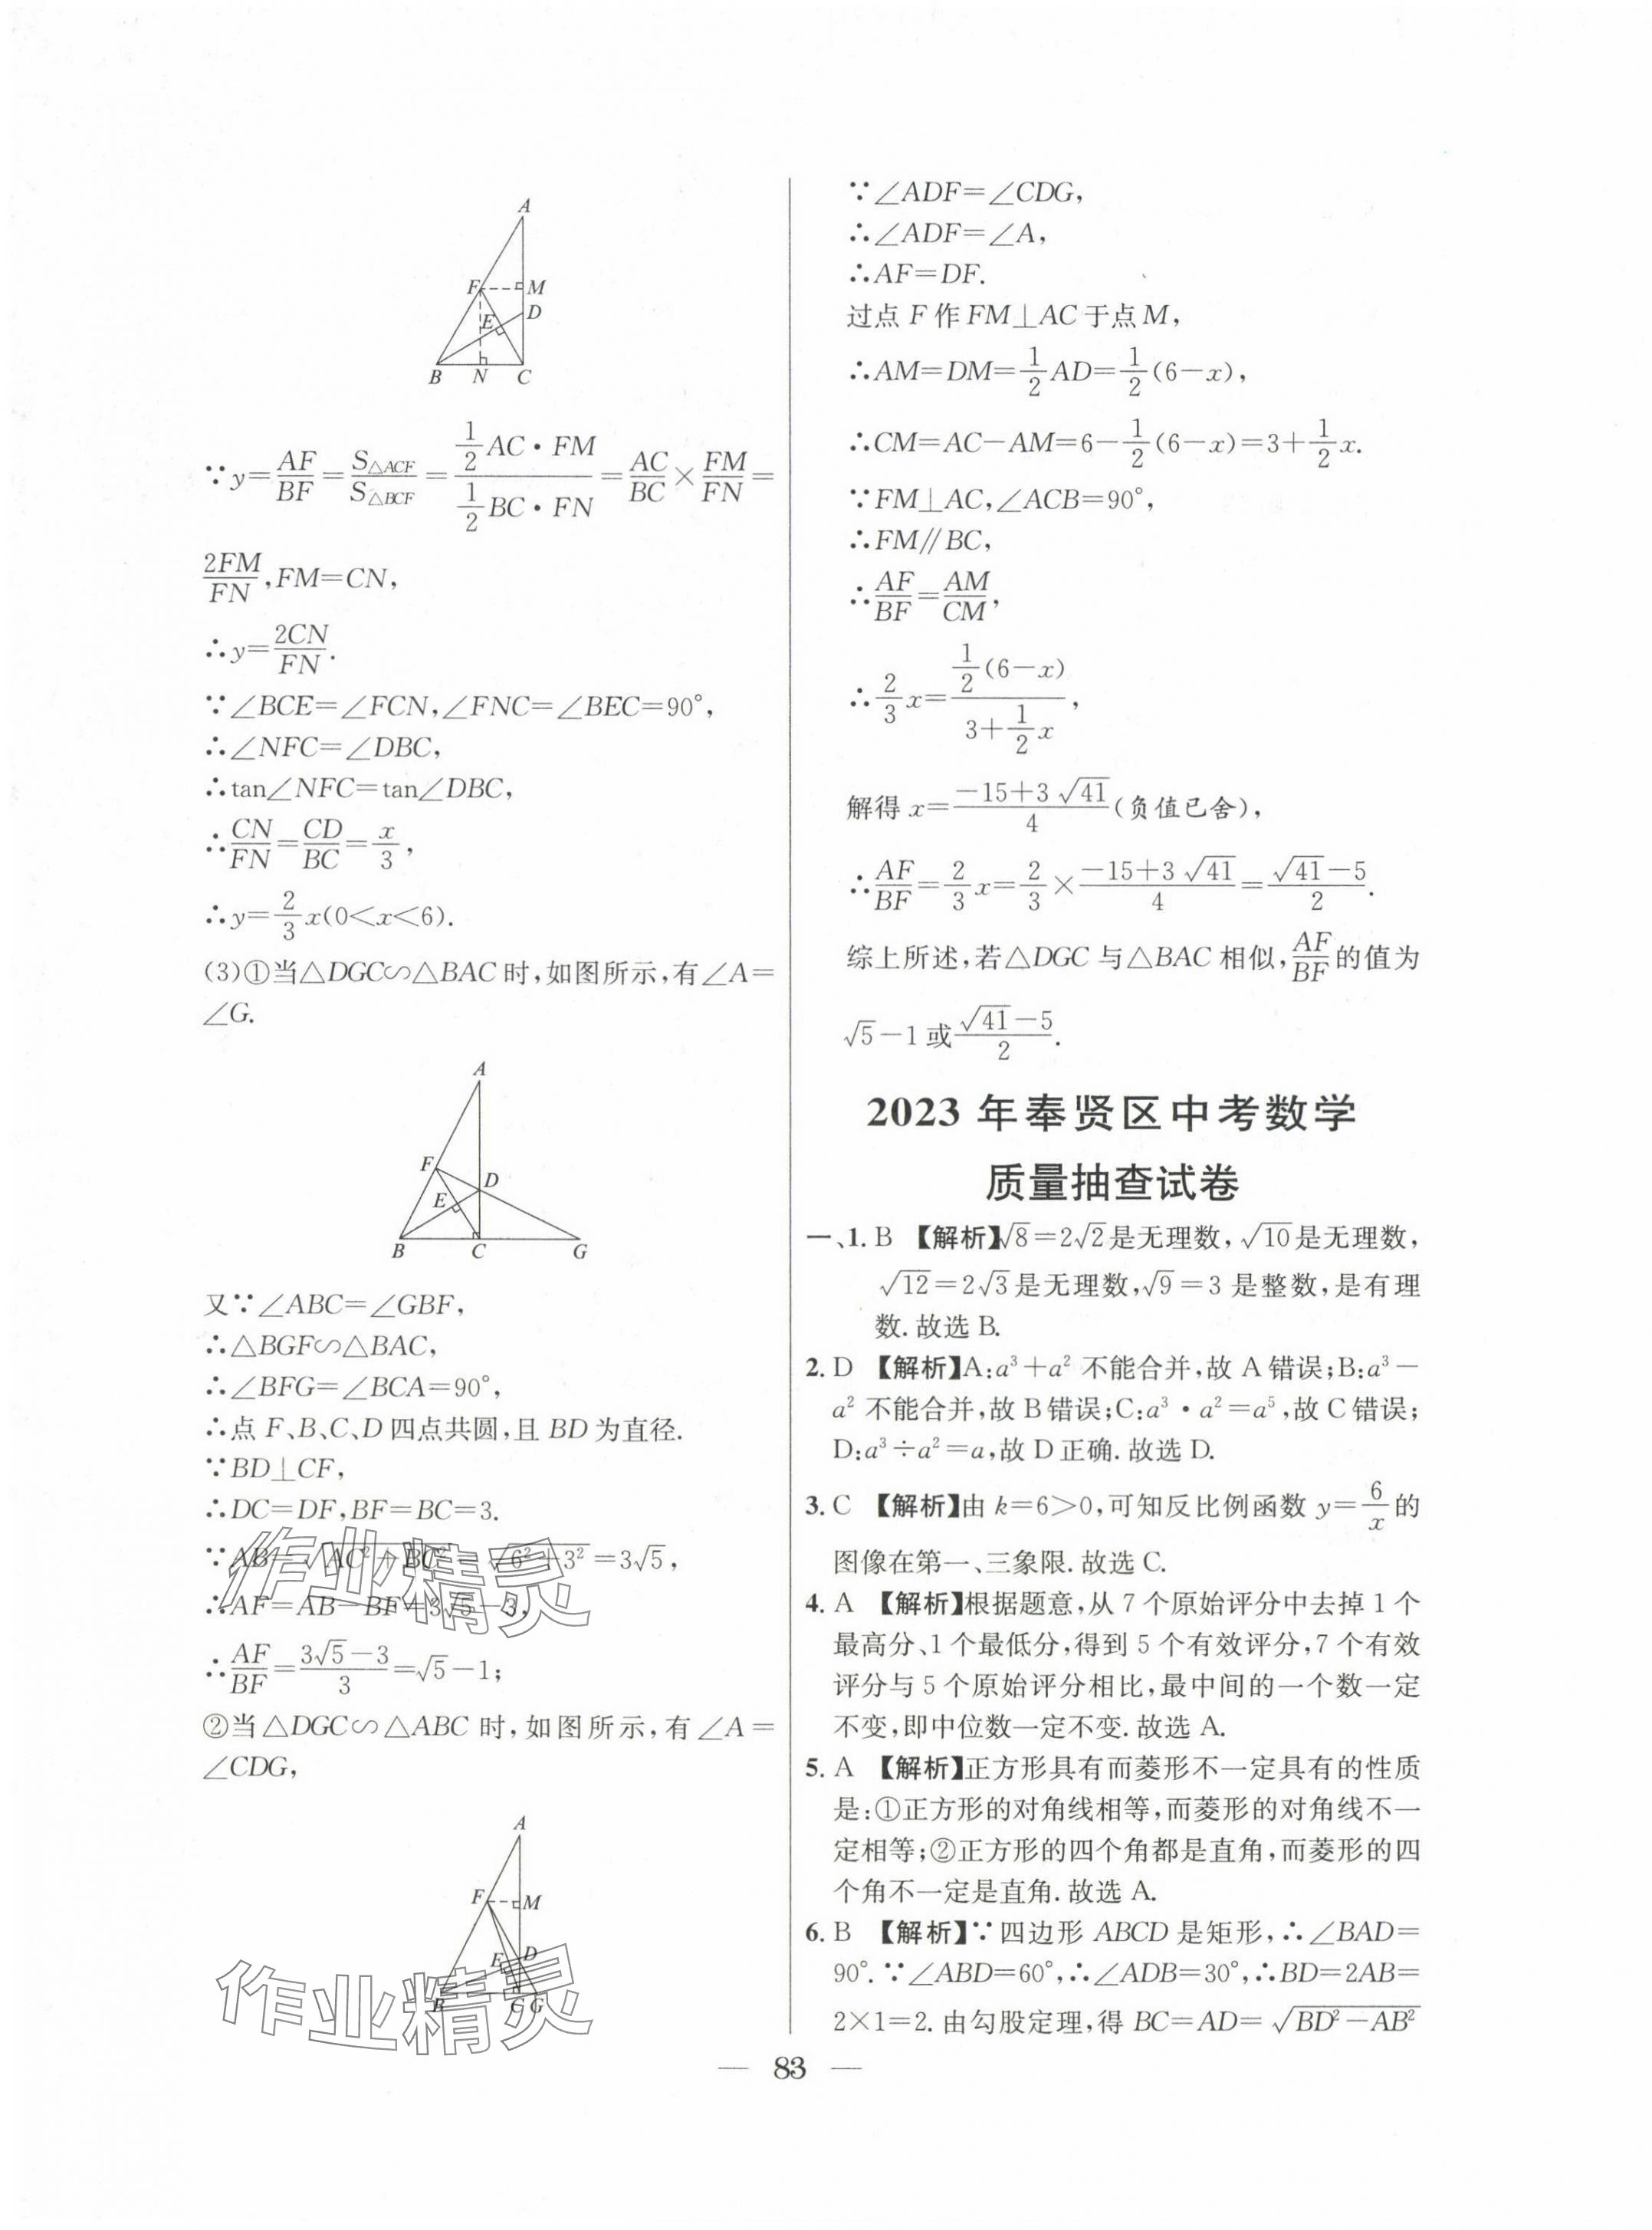 A
F
M
E
D
B N C
∵y=AF/BF=S△ACF/S△BCF=(1/2 AC·FM)/(1/2 BC·FN)=AC/BC×FM/FN=
2FM/FN,FM=CN,
∴y=2CN/FN.
∵∠BCE=∠FCN,∠FNC=∠BEC=90°,
∴∠NFC=∠DBC,
∴tan∠NFC=tan∠DBC,
∴CN/FN=CD/BC=x/3,
∴y=2/3 x(0<x<6).
(3)①当△DGC∽△BAC时,如图所示,有∠A=
∠G.
A
F
D
E
B C G
又∵∠ABC=∠GBF,
∴△BGF∽△BAC,
∴∠BFG=∠BCA=90°,
∴点F、B、C、D四点共圆,且BD为直径.
∵BD⊥CF,
∴DC=DF,BF=BC=3.
∵AB=√(AC²+BC²)=√(6²+3²)=3√5,
∴AF=AB-BF=3√5-3,
作业精灵
∴AF/BF=(3√5-3)/3=√5-1;
②当△DGC∽△ABC时,如图所示,有∠A=
∠CDG,
A
F
M
E
D
B C G
作业精灵
∵∠ADF=∠CDG,
∴∠ADF=∠A,
∴AF=DF.
过点F作FM⊥AC于点M,
∴AM=DM=1/2 AD=1/2(6-x),
∴CM=AC-AM=6-1/2(6-x)=3+1/2 x.
∵FM⊥AC,∠ACB=90°,
∴FM∥BC,
∴AF/BF=AM/CM,
∴2/3 x=(1/2(6-x))/(3+1/2 x),
解得x=(-15+3√41)/4(负值已舍),
∴AF/BF=2/3 x=2/3×(-15+3√41)/4=(√41-5)/2.
综上所述,若△DGC与△BAC相似,AF/BF的值为
√5-1或(√41-5)/2.
2023年奉贤区中考数学
质量抽查试卷
一、1. B 【解析】√8=2√2是无理数,√10是无理数,
√12=2√3是无理数,√9=3是整数,是有理
数.故选B.
2. D 【解析】A:a³+a²不能合并,故A错误;B:a³-
a²不能合并,故B错误;C:a³·a²=a⁵,故C错误;
D:a³÷a²=a,故D正确.故选D.
3. C 【解析】由k=6>0,可知反比例函数y=6/x的
图像在第一、三象限.故选C.
4. A 【解析】根据题意,从7个原始评分中去掉1个
最高分、1个最低分,得到5个有效评分,7个有效
评分与5个原始评分相比,最中间的一个数一定
不变,即中位数一定不变.故选A.
5. A 【解析】正方形具有而菱形不一定具有的性质
是:①正方形的对角线相等,而菱形的对角线不一
定相等;②正方形的四个角都是直角,而菱形的四
个角不一定是直角.故选A.
6. B 【解析】∵四边形ABCD是矩形,∴∠BAD=
90°.∵∠ABD=60°,∴∠ADB=30°,∴BD=2AB=
2×1=2.由勾股定理,得BC=AD=√(BD²-AB²)
— 83 —